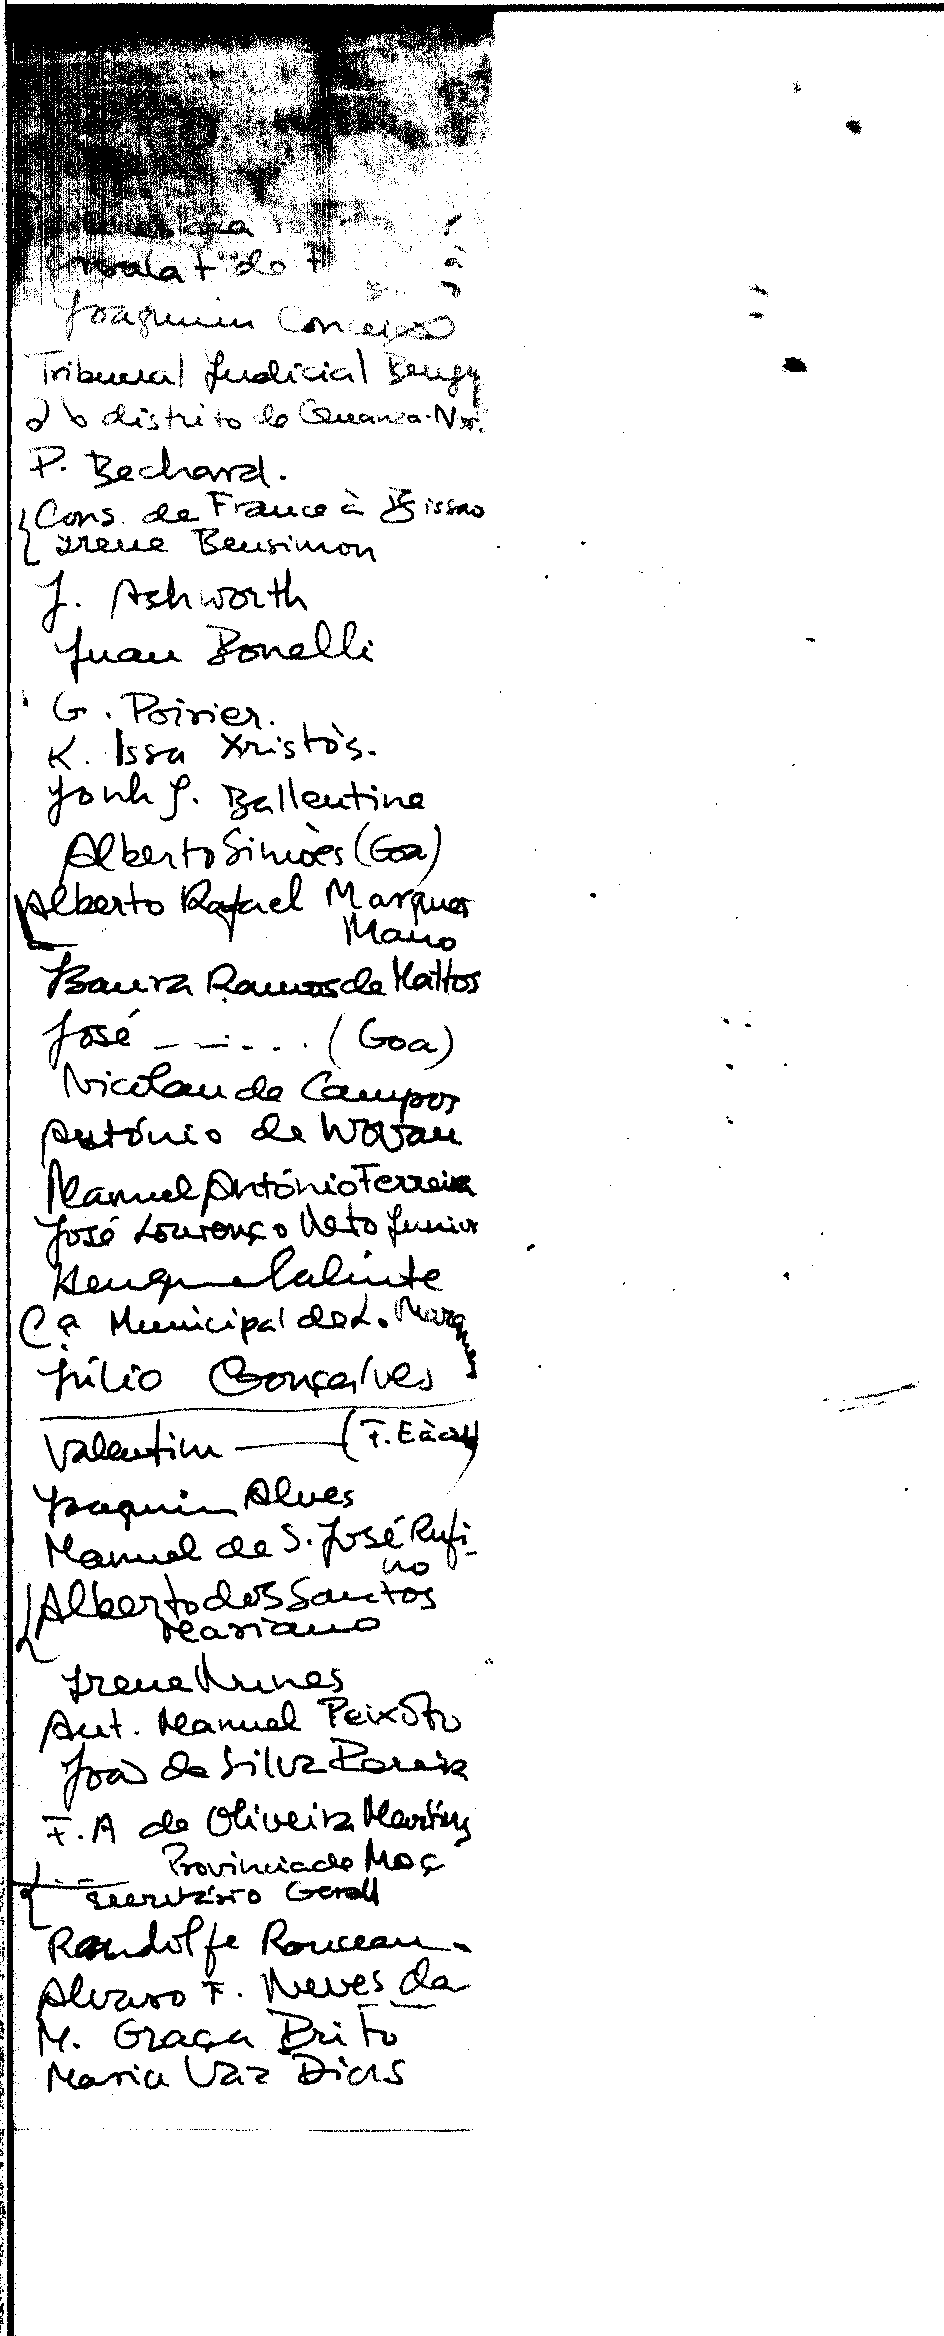 Joaquim Conceição
Tribunal Judicial
do distrito de Quanza-Nor.
P. Bechard.
Cons. de France à Bissao
Irene Bensimon
J. Ashworth
Juan Bonelli
G. Poirier.
K. Issa Xristòs.
Jonh J. Ballentine
Alberto Simões (Goa)
Alberto Rafael Marques
Mano
Ramos de Mattos
José — — . . . (Goa)
Nicolau de Campos
António de
Manuel António Ferreira
José Lourenço Neto Junior
Ca Municipal de L. Marques
Júlio Gonçalves
Valentim —— (F.
Joaquim Alves
Manuel de S. José Rufi-
no
Alberto dos Santos
Mariano
Irene Nunes
Ant. Manuel Peixôto
João da Silva
F. A de Oliveira Martins
Provincia de Moç
Secretário Geral
Randolfe
Alvaro F. Neves da
M. Graça Brito
Maria Vaz Dias